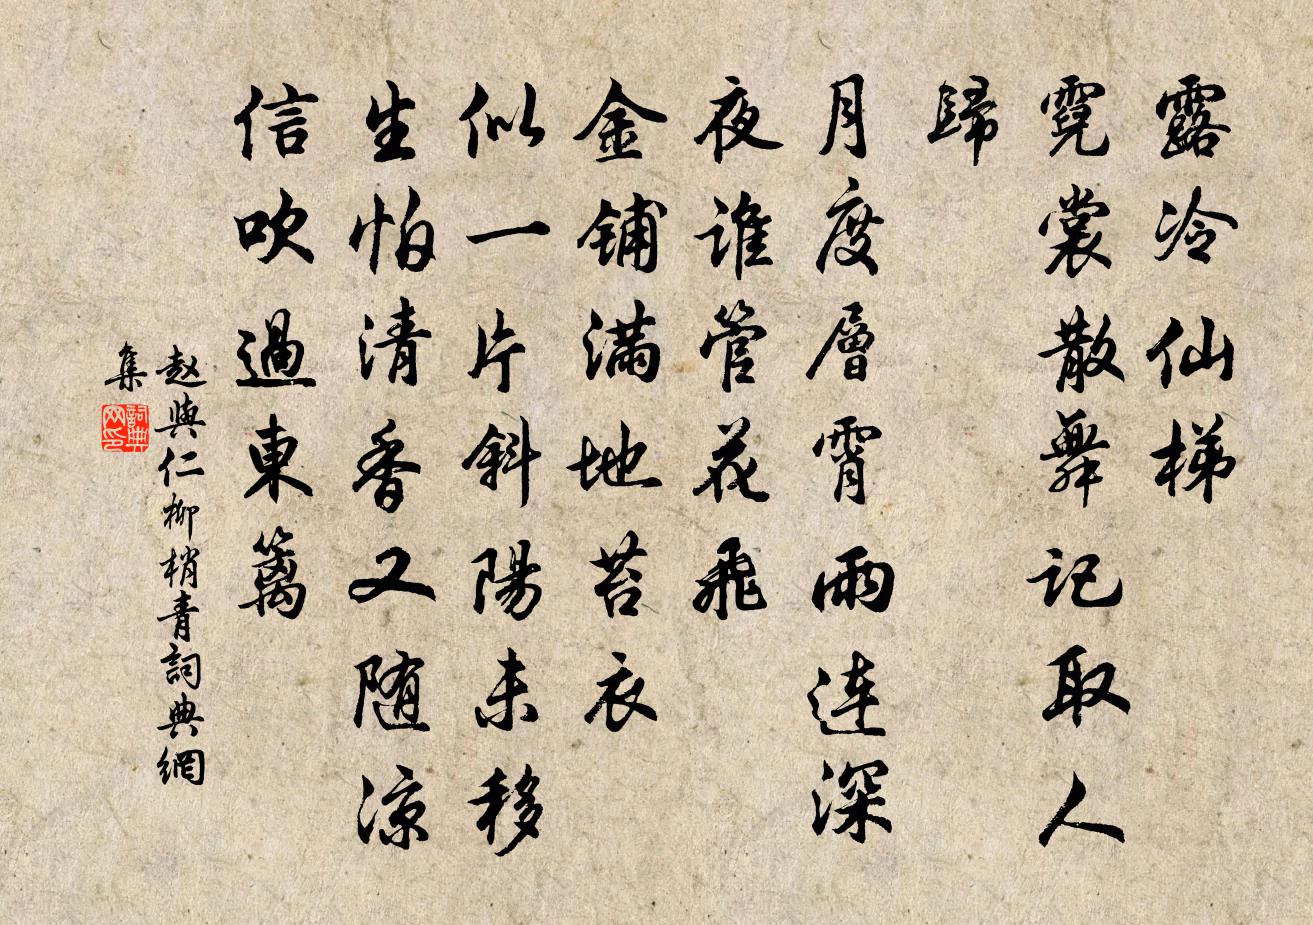 露冷仙梯
霓裳散舞記取人
歸
月度層霄雨连深
夜誰管花飛
金鋪滿地苔衣
似一片斜陽未移
生怕清香又随凉
信吹過東篱
赵與仁柳梢青詞典網
集
詞典网印